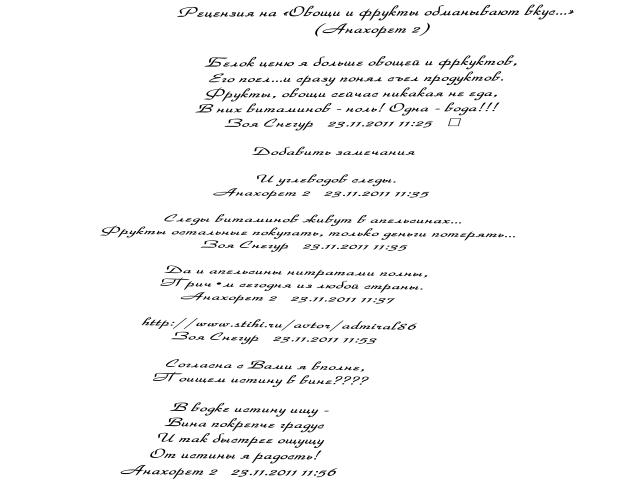 Рецензия на «Овощи и фрукты обманывают вкус...»
(Анахорет 2)
Белок ценю я больше овощей и фркуктов,
Его поел...и сразу понял съел продуктов.
Фрукты, овощи сейчас никакая не еда,
В них витаминов - ноль! Одна - вода!!!
Зоя Снегур 23.11.2011 11:25 □
Добавить замечания
И углеводов следы.
Анахорет 2 23.11.2011 11:35
Следы витаминов живут в апельсинах...
Фрукты остальные покупать, только деньги потерять...
Зоя Снегур 23.11.2011 11:35
Да и апельсины нитратами полны,
Прич•м сегодня из любой страны.
Анахорет 2 23.11.2011 11:37
http://www.stihi.ru/avtor/admiral86
Зоя Снегур 23.11.2011 11:53
Согласна с Вами я вполне,
Поищем истину в вине????
В водке истину ищу -
Вина покрепче градус
И так быстрее ощущу
От истины я радость!
Анахорет 2 23.11.2011 11:56